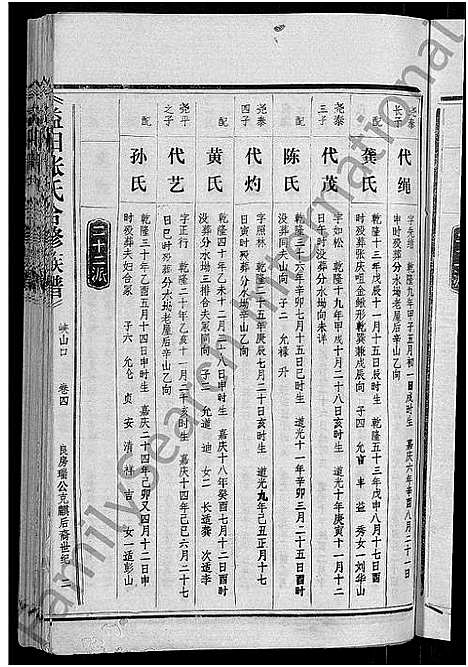 尧泰
长子
代绳
字先培 乾隆九年甲子五月初一日戌时生 嘉庆六年辛酉八月二十一日
申时殁葬分水坳老屋后辛山乙向
配
龚氏
乾隆十三年戊辰十一月十五日辰时生 乾隆五十三年戊申八月十七日酉
时殁葬张庆咀金鳅形乾巽兼戌辰向 子四 允 丰 益 秀 女一刘华山
尧泰
三子
代茂
字如松 乾隆十九年甲戌十月二十八日亥时生 道光十年庚寅十一月十二
日午时没葬分水坳向未详
配
陈氏
乾隆三十六年辛卯七月十五日巳时生 道光十一年辛卯三月二十五日酉
时没葬同夫山向 子二 允椽 升
尧泰
四子
代灼
字照林 乾隆二十五年庚辰七月二十日亥时生 道光九年己丑正月十七
日寅时殁葬分水坳辛山乙向
配
黄氏
乾隆四十年 月二十二日申时生 嘉庆十八年癸酉七月十二日酉时
没葬分水坳三排合夫冢同向 子三 允道 迪 女二 长适龚 次适李
尧平
之子
代艺
字正行 乾隆二十年乙亥十一月二十亥时生 嘉庆十四年己巳六月二十七
日巳时殁葬分水坳老屋后辛山乙向
配
孙氏
乾隆三十年乙酉五月十四日申时生 嘉庆二十四年己卯又四月十二日申
时殁葬夫妇合冢 子六 允伦 贞 安 清 祥 吉 女一适彭山
二十二派
益阳张氏合修族谱
峡山口 卷四 良房瑞公克麒后裔世纪
FamilySearch International